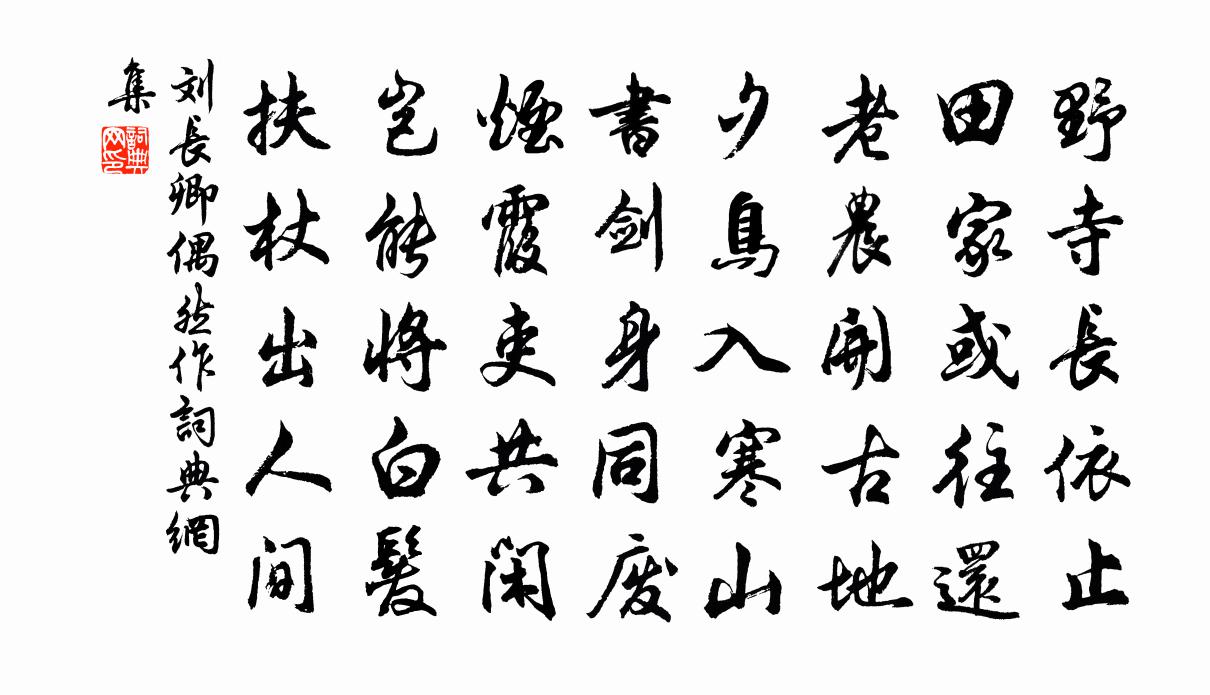 野寺長依止
田家或往還
老農開古地
夕鳥入寒山
書剑身同廢
煙霞吏共閑
岂能將白髮
扶杖出人間
刘長卿偶然作詞典網
集
詞典网印